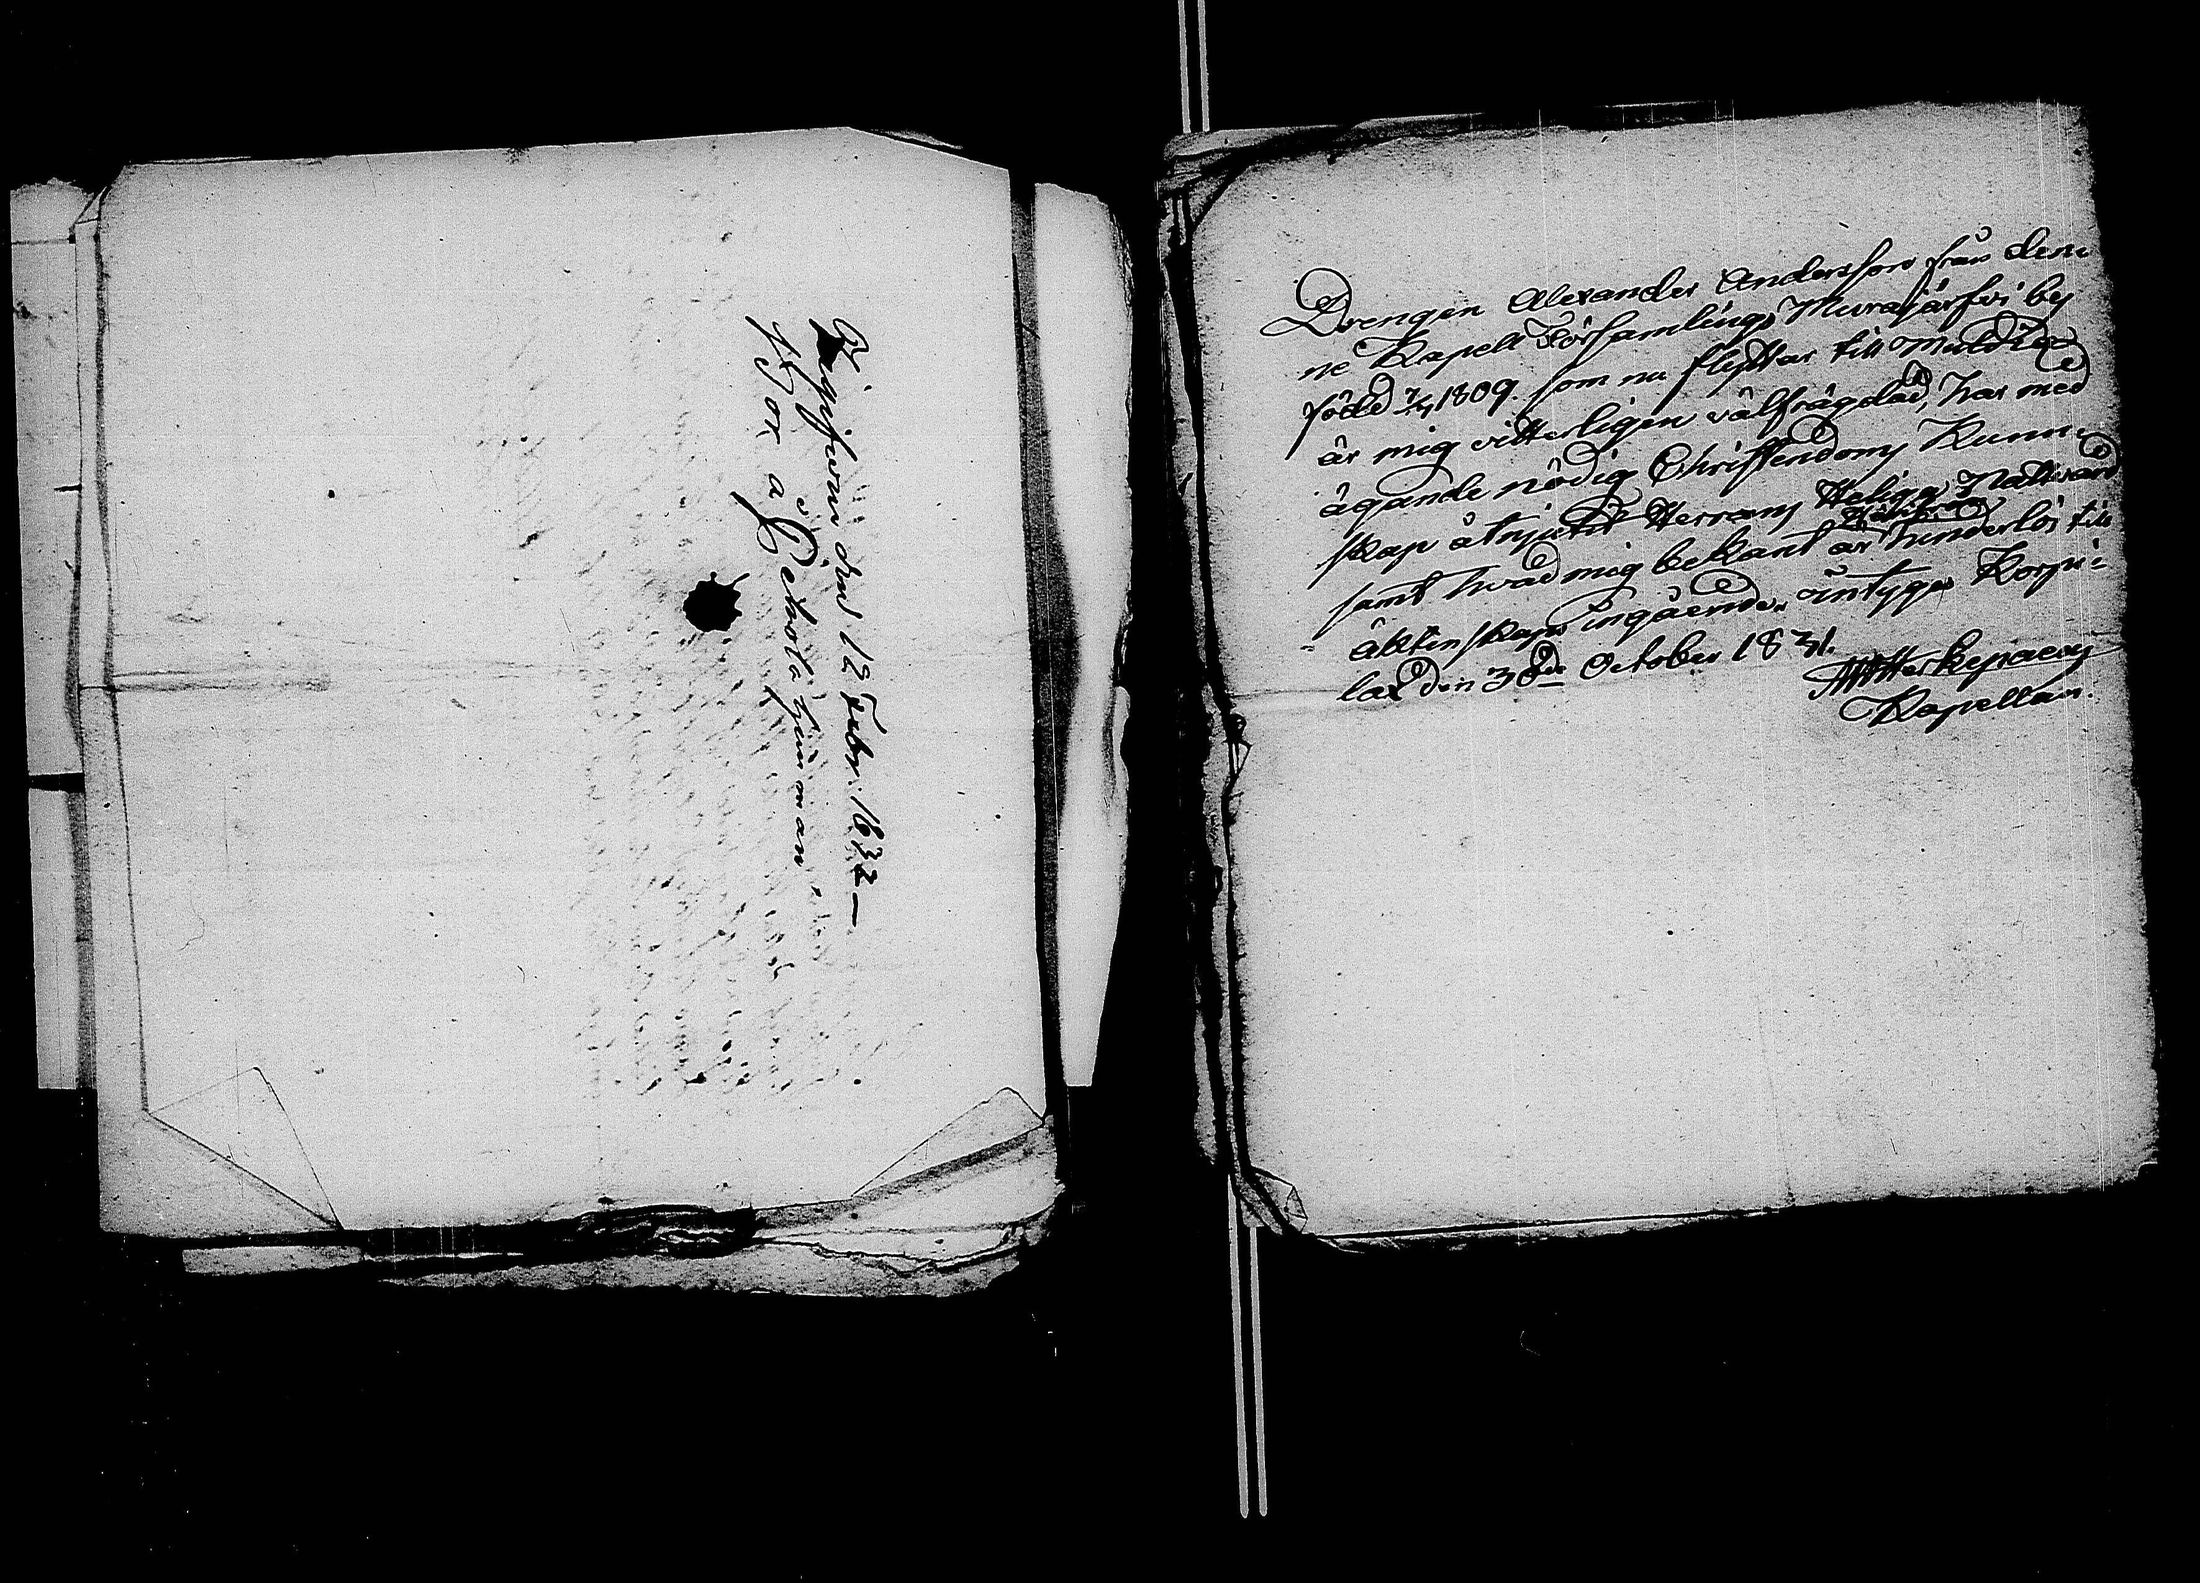 den 12 Febr. 1832 —
för å Pekola hemman
Drengen Alexander Andersson från den-
ne Kapell Församlings Murajärfvi by
född 7/4 1809. som nu flyttar till
är mig vitterligen välfrägdad, har med
ägande nödig Christendoms Kunn-
skap åtnjutit Herrans Heliga Nattvard
samt hvad mig bekant är hinderlös till
äktenskaps ingående, intygar Korpi-
lax den 30de October 1831.
Kapellan.